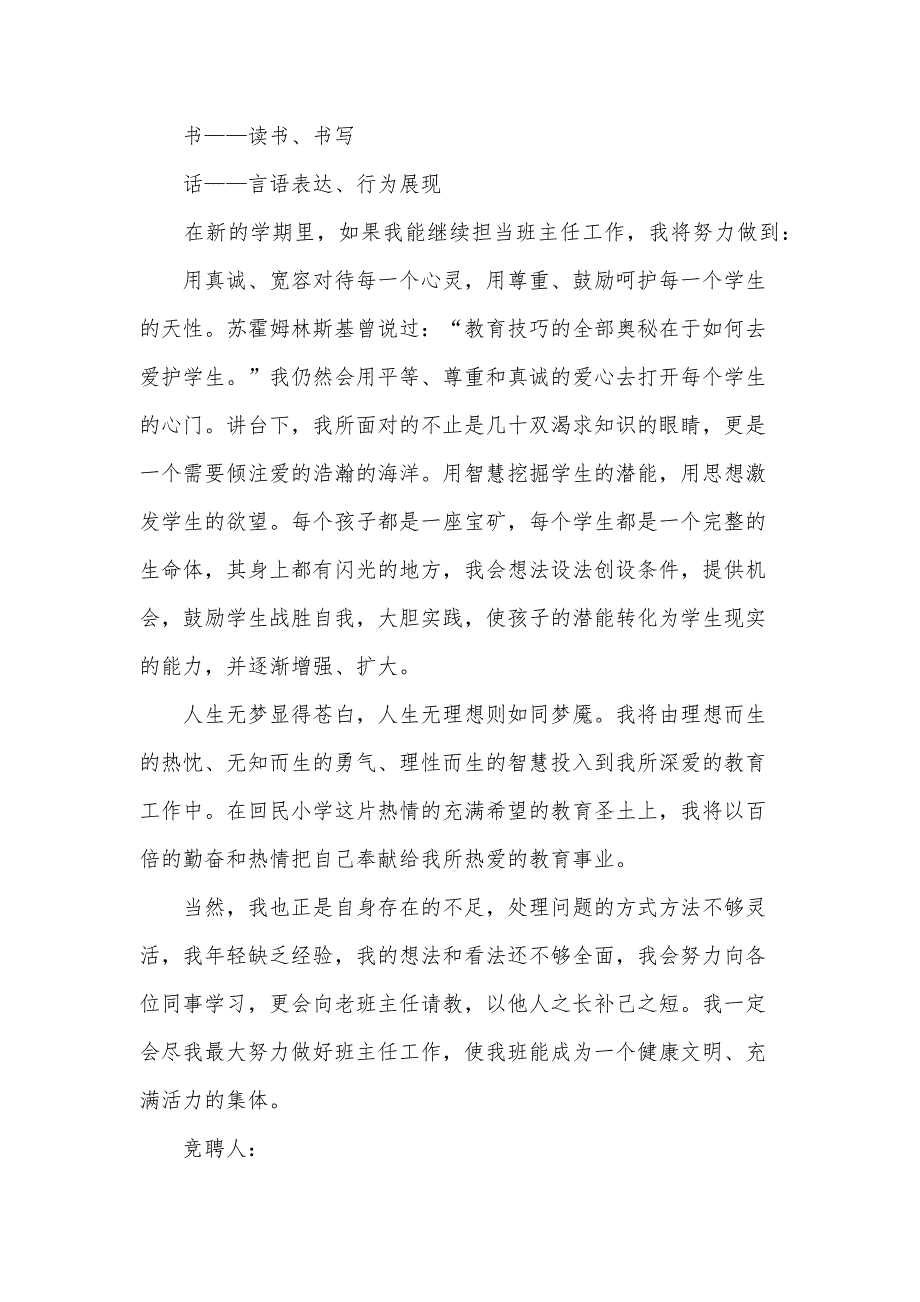 书——读书、书写
话——言语表达、行为展现
在新的学期里，如果我能继续担当班主任工作，我将努力做到：
用真诚、宽容对待每一个心灵，用尊重、鼓励呵护每一个学生
的天性。苏霍姆林斯基曾说过：“教育技巧的全部奥秘在于如何去
爱护学生。”我仍然会用平等、尊重和真诚的爱心去打开每个学生
的心门。讲台下，我所面对的不止是几十双渴求知识的眼睛，更是
一个需要倾注爱的浩瀚的海洋。用智慧挖掘学生的潜能，用思想激
发学生的欲望。每个孩子都是一座宝矿，每个学生都是一个完整的
生命体，其身上都有闪光的地方，我会想法设法创设条件，提供机
会，鼓励学生战胜自我，大胆实践，使孩子的潜能转化为学生现实
的能力，并逐渐增强、扩大。
人生无梦显得苍白，人生无理想则如同梦魇。我将由理想而生
的热忱、无知而生的勇气、理性而生的智慧投入到我所深爱的教育
工作中。在回民小学这片热情的充满希望的教育圣土上，我将以百
倍的勤奋和热情把自己奉献给我所热爱的教育事业。
当然，我也正是自身存在的不足，处理问题的方式方法不够灵
活，我年轻缺乏经验，我的想法和看法还不够全面，我会努力向各
位同事学习，更会向老班主任请教，以他人之长补己之短。我一定
会尽我最大努力做好班主任工作，使我班能成为一个健康文明、充
满活力的集体。
竞聘人：